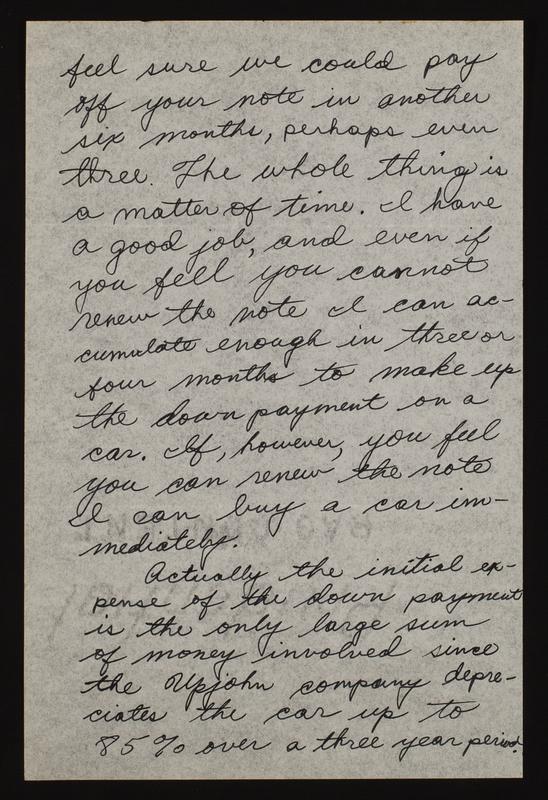 feel sure we could pay
off your note in another
six months, perhaps even
three. The whole thing is
a matter of time. I have
a good job, and even if
you fell you cannot
renew the note I can ac-
cumulate enough in three or
four months to make up
the down payment on a
car. If, however, you feel
you can renew the note
I can buy a car im-
mediately.
Actually the initial ex-
pense of the down payment
is the only large sum
of money involved since
the Upjohn company depre-
ciates the car up to
85% over a three year period.